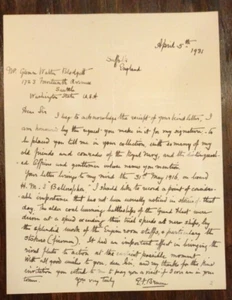 April 5th
1931
Suffolk
England
Mr. Glenn Walter Blodgett
Seattle
Washington State U.S.A
Dear Sir
I beg to acknowledge the receipt of your kind letter, I
am honoured by the request you make in it for my signature - to
be placed you tell me in your collection, with so many of my
old friends and comrades of the Royal Navy, and the distinguished
Officers and gentlemen whose names you mention
Your letter brings to my mind the 31st May 1916 on board
H.M.S Bellerophon. I should like to record a point of consider-
able importance that has not been correctly noticed in
that day the older coal burning battleships of the Grand Fleet were
driven at a speed over their rated speeds at sea, by
the splendid work of the Engine room staffs, & particularly the
stokers (firemen). It had an important effect in bringing the
rival fleets to action at the earliest possible moment.
With all good wishes to you, dear Sir, and my thanks for the kind
invitation you to pay you a visit if I were ever in your
town.
Yours very truly